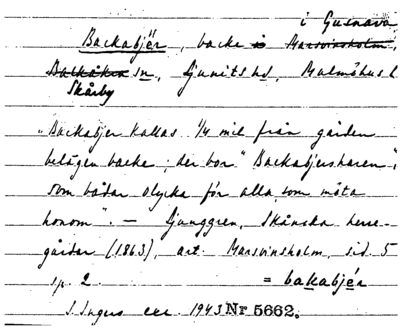 i Gusnava
Backabjër, backe i̶s̶ M̶a̶r̶s̶v̶i̶n̶s̶h̶o̶l̶m̶,
B̶a̶l̶k̶å̶k̶r̶a̶ sn, Ljunits hd, Malmöhus l
Skårby
"Backabjer kallas 1/4 mil från gården
belägen backe; der bor "Backabjersharen",
som bådar olycka för alla, som möta
honom". — Ljunggren, Skånska herre-
gårdar (1863), art. Marsvinsholm, sid. 5
sp. 2. = bakabjér
J. Ingers exc. 1943 Nr 5662.